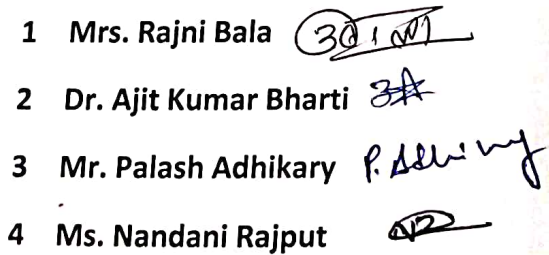 1 Mrs. Rajni Bala
2 Dr. Ajit Kumar Bharti
3 Mr. Palash Adhikary P.
4 Ms. Nandani Rajput